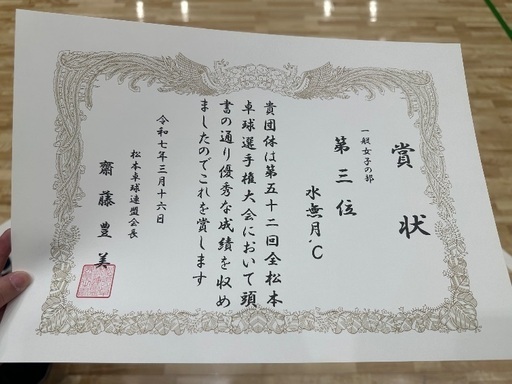 賞状
一般女子の部
第三位
水無月'C
貴団体は第五十二回全松本
卓球選手権大会において頭
書の通り優秀な成績を収め
ましたのでこれを賞します
令和七年三月十六日
松本卓球連盟会長
齋藤豊美